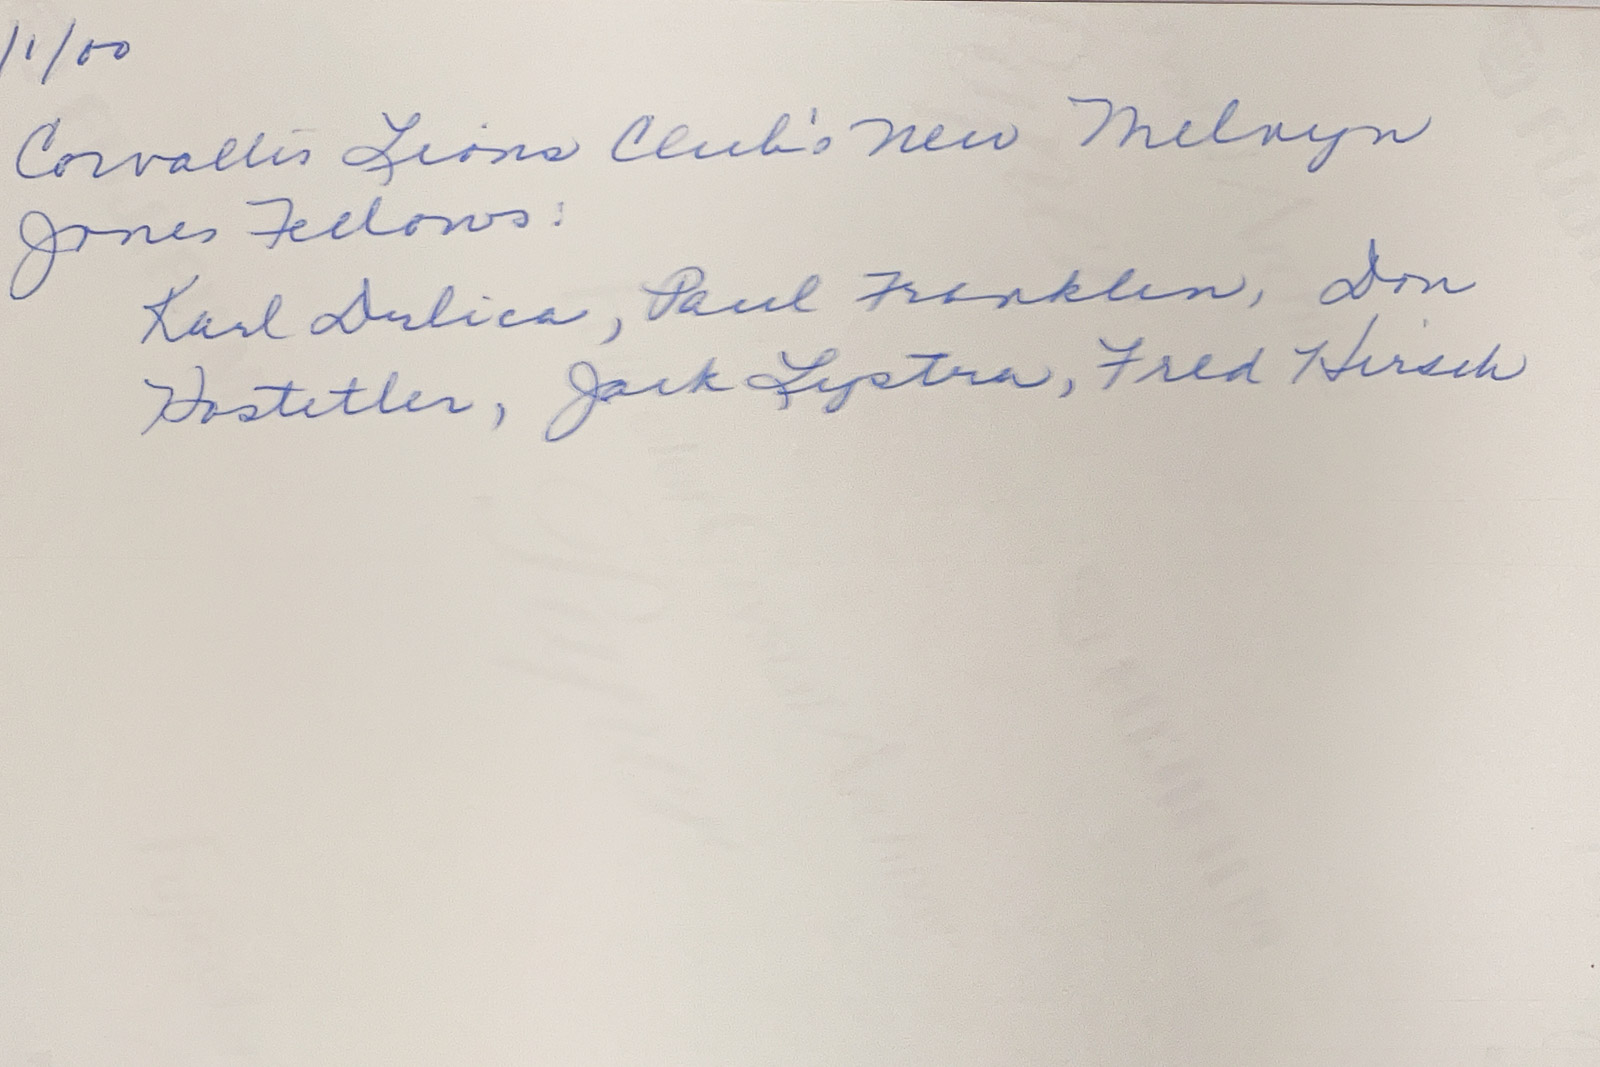 /1/00
Corvallis Lions Club's New Melvyn
Jones Fellows:
Karl Drlica, Paul Franklin, Don
Hostetler, Jack Lystra, Fred Hirsch